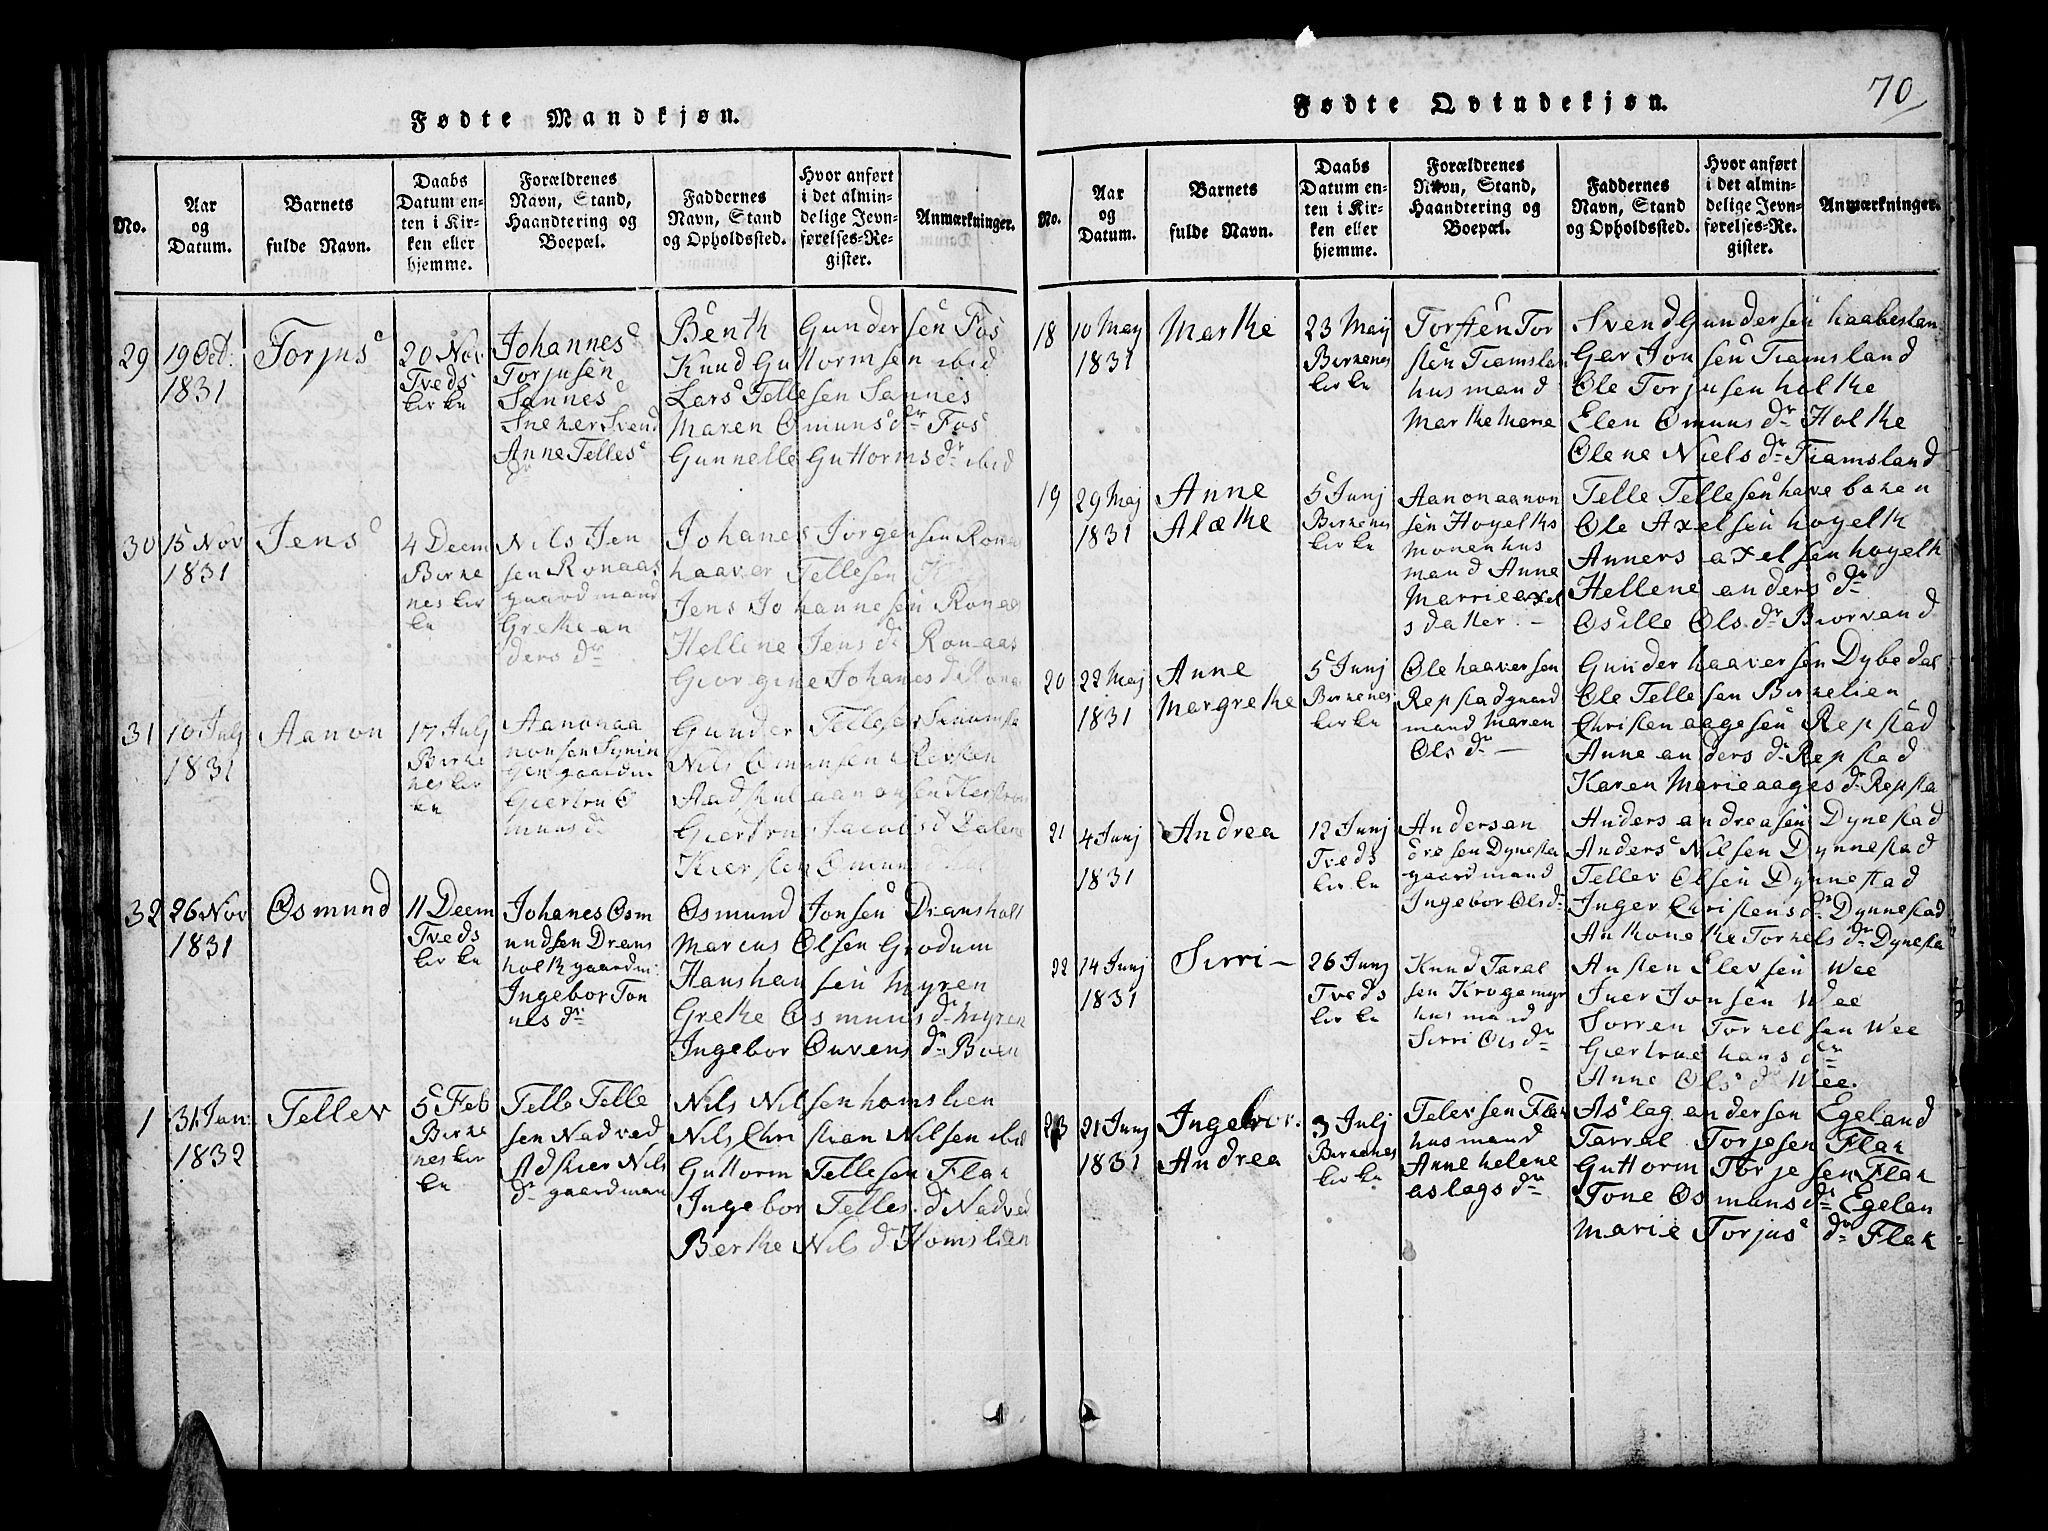 70
Fødte Mandkjøn.
No.
Aar
og
Datum.
Barnets
fulde Navn.
Daabs
Datum en-
ten i Kir-
ken eller
hjemme.
Forældrenes
Navn, Stand,
Haandtering og
Boepæl.
Faddernes
Navn, Stand
og Opholdssted.
Hvor anført
i det almin-
delige Jevn-
førelses-Re-
gister.
Anmærkninger.
29
19 Oct.
1831
Torjus
20 Nov
Tveds
kirke
Johannes
Torjusen
Sannes
Sneker Svend
Anne Telles
dr
Benth Gundersen Fos
Knud Guttormsen ibid
Lars Tellesen Sannes
Maren Omunsdr Fos
Gunnelle Guttormsdr ibid
30
15 Nov
1831
Jens
4 Deem
Birke
nes kir
ke
Nils Jen
sen Ronaas
gaardmand
Grethe an
ders dr
Johanes Jorgensen Ronas
haaver Tellesen
Jens Johannesen Ronaas
Hellene Jensdr Ronaas
Giorgine Johanesdr Rona
31
10 Julj
1831
Aanon
17 Julj
Birke
nes kir
ke
Aanon aa
nonsen
gaardm
Giertru O
muns dr
Gunder Tellefsen
Nils Omunsen
Aadsku aanonsen
Giertru Jacobsd Dalene
Kiersten Omun
32
26 Nov
1831
Osmund
11 Deem
Tveds
kirke
Johanes Osm
undsen Drans
holt gaardm
Ingebor Ton
nes dr
Osmund Jonsen Dransholt
Marcus Olsen Grodum
Hans hansen Myren
Grethe Osmunsdr Myren
Ingebor Ouvensdr Boen
1
31 Jan
1832
Tellev
5 Feb
Birke
nes kir
ke
Telle Telle
sen Nadved
Adskier Nils
dr gaardman
Nils Nilsen homslien
Nils Christian Nilsen ibid
Guttorm Tellesen Flak
Ingebor Tellesd Nadved
Berthe Nilsd Homslien
Fødte Qvindekjøn.
No.
Aar
og
Datum.
Barnets
fulde Navn.
Daabs
Datum en-
ten i Kir-
ken eller
hjemme.
Forældrenes
Navn, Stand,
Haandtering og
Boepæl.
Faddernes
Navn, Stand
og Opholdssted.
Hvor anført
i det almin-
delige Jevn-
førelses-Re-
gister.
Anmærkninger.
18
10 May
1831
Marthe
23 Maij
Birkenes
kirke
Torsten Tor
sten Tiamslan
husmand
Marthe Marie
Svend Gundersen haabeslan
Ger Jonsen Tiamsland
Ole Torjusen holthe
Elen Omunsdr Holthe
Olene Nielsdr Tiamsland
19
29 Maj
1831
Anne
Alæthe
5 Junj
Birkenes
kirke
Aanon aanon
sen Hoyelths
monen hus
mand Anne
Marrie axel
sdatter. –
Telle Tellesen havebaken
Ole Axelsen hoyelth
Anners axelsen hoyelth
Hellene andersdr
Osille Olsdr Biorvand
20
22 Maj
1831
Anne
Margrethe
5 Junj
Birkenes
kirke
Ole haaversen
Repstad gaard
mand Maren
Olsdr –
Gunder haaversen Dybedal
Ole Tellesen Birkelien
Christen aagesen Repstad
Anne andersdr Repstad
Karen Marie aagesdr Repsta
21
4 Junj
1831
Andrea
12 Junj
Tveds
kirke
Anders an
dresen Dynesta
gaardmand
Ingebor Olsdr
Anders andreasen Dynestad
Anders Nilsen Dynnestad
Tellev Olsen Dynnestad
Inger Christensdr Dynnestad
Anthonethe Torkelsdr Dynesta
22
14 Junj
1831
Sirri –
26 Junj
Tveds
kirke
Knud Taral
sen Krogemyr
husmand
Sirri Olsdr
Austen Elevsen Wee
Iver Jonsen Wee
Sorren Torkelsen Wee
Giertrue hansdr
Anne Olsdr Wee.
23
21 Junj
1831
Ingebor.
Andrea
3 Julj
Birkenes
kirke
Televsen Flak
husmand
Anne helene
aslagsdr
Aslag andersen Egeland
Tarral Torjesen Flak
Guttorm Torjesen Flak
Tone Osmunsdr Egelan
Marie Torjusdr Flak